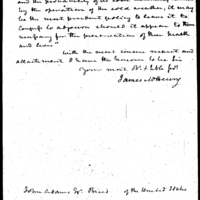 by the operation of the cold weather, it may
be the most prudent policy to leave it to
Congress to adjourn should it appear to them
necessary for the preservation of their health
and lives"
With the most sincere respect and
attachment I have the honour to be Sir
Your most Ob. & hble Ser.
James McHenry
John Adams Esq. Presd of the United States